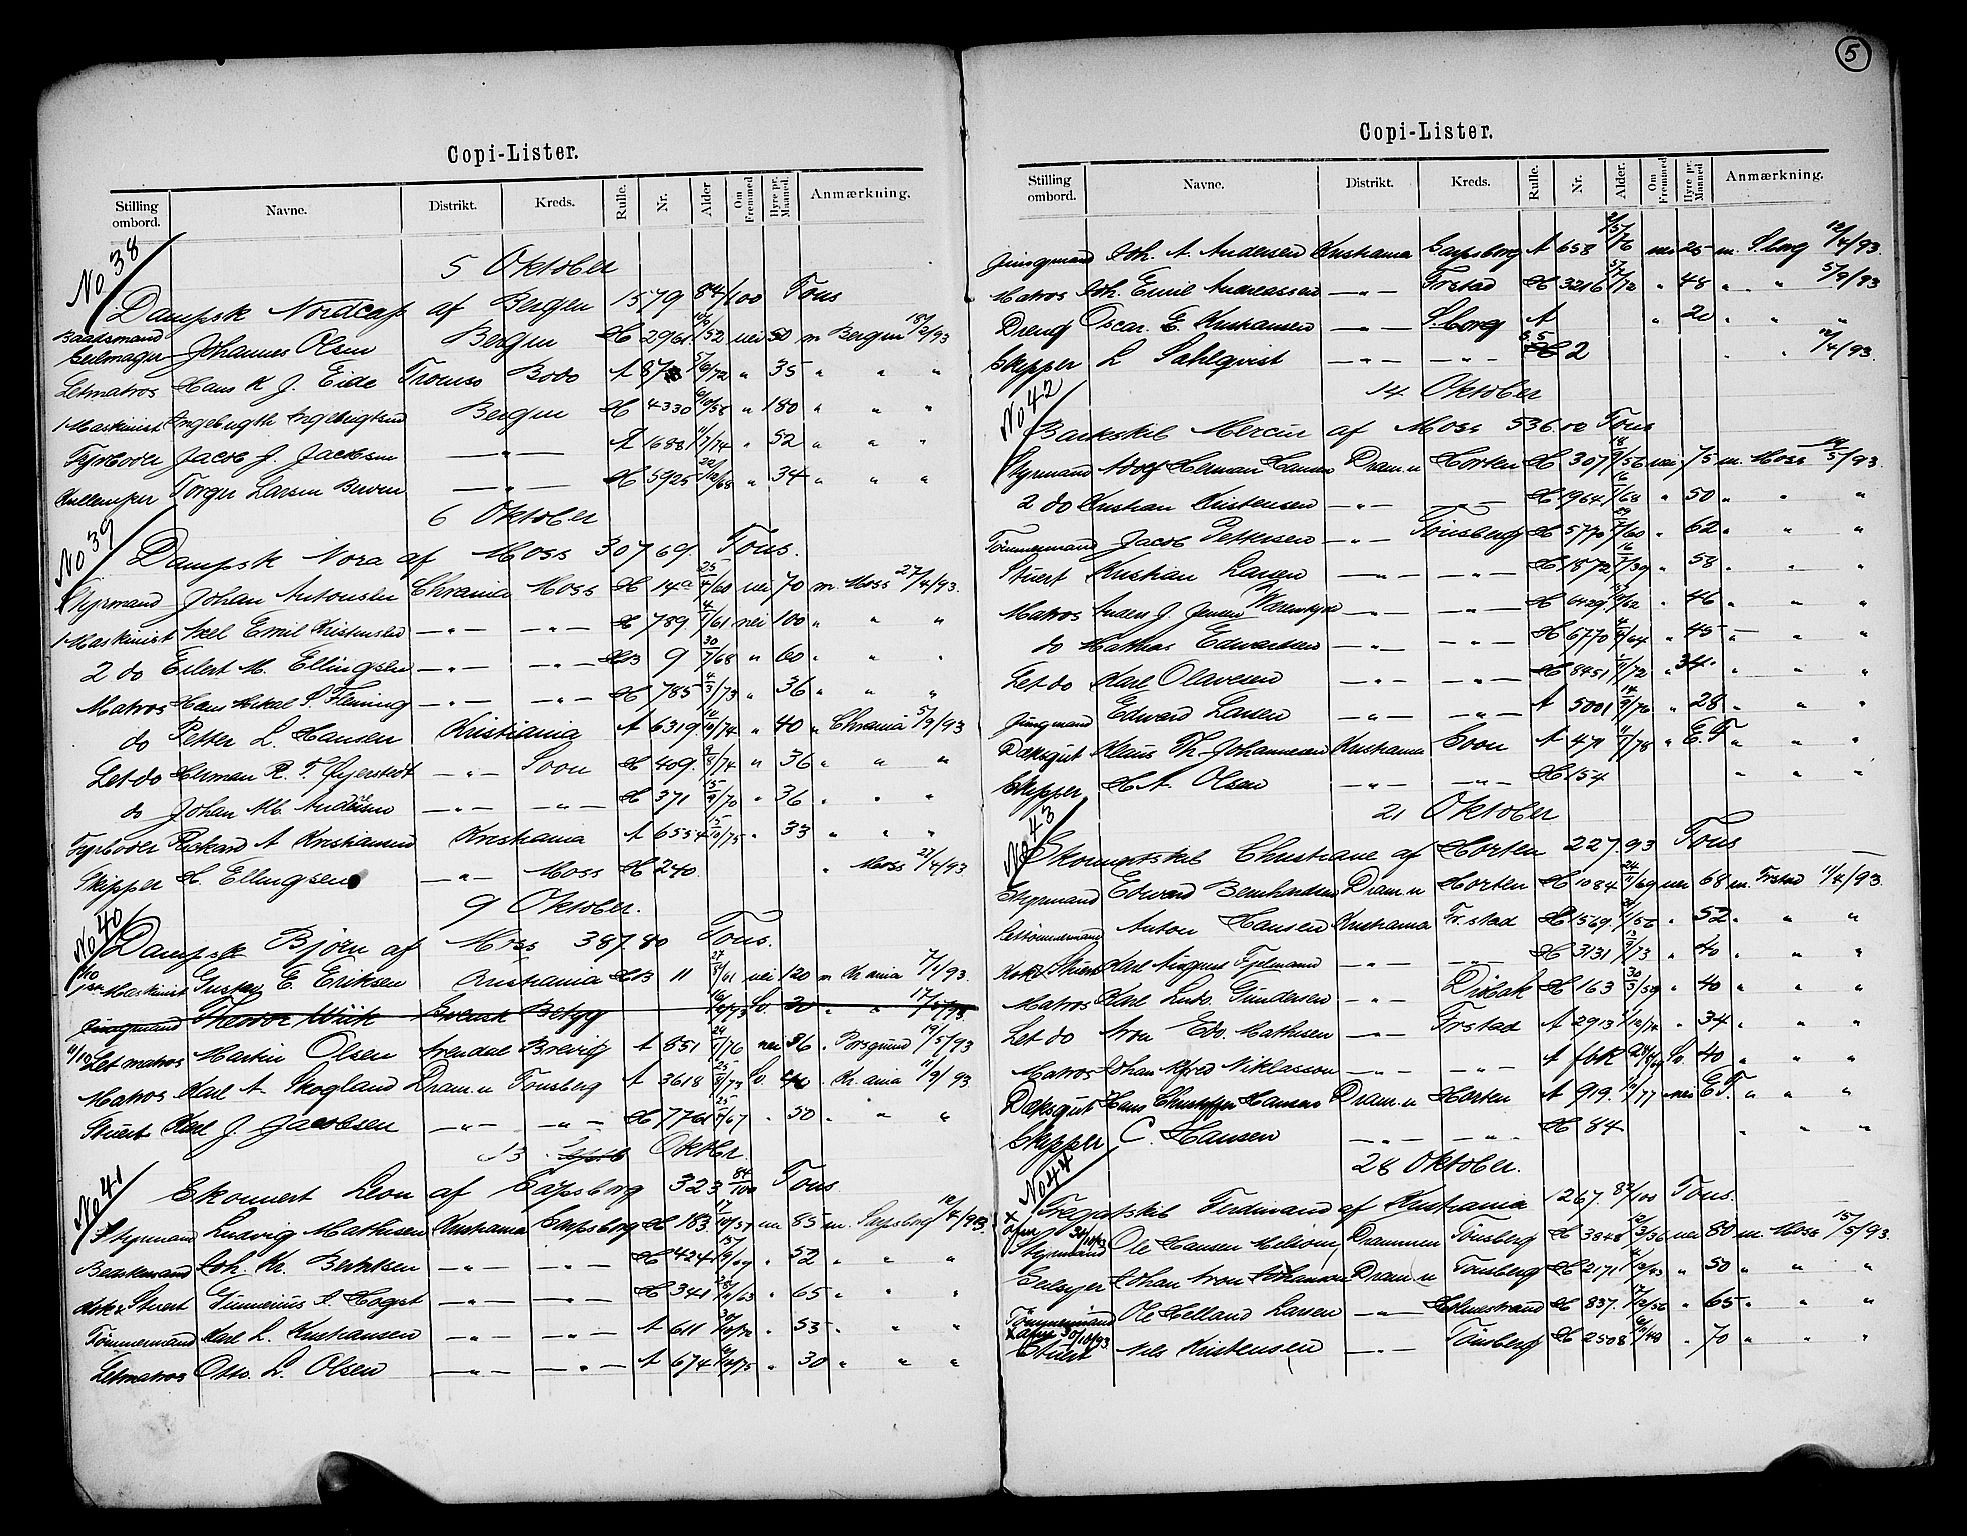 Copi-Lister.
Stilling ombord. Navne. Distrikt. Kreds. Rulle. Nr. Alder Om Fremmed Hyre pr. Maaned. Anmærkning.
No 38
5 Oktober
Dampsk Nordcap af Bergen 1579 84/100 Tons
Baadsmand
Seilmager Johannes Olsen Bergen H 2961 /52 nei 50 m Bergen 18/2/93
Letmatros Hans K J. Eide Tromsö Bodö A 5/6/72 " 35 " " "
1 Maskinist Ingebrigth Ingebrigtsen Bergen H 4330 6/10/58 " 180 " " "
Fyrböder Jacob J. Jacobsen — " — A 1688 11/7/74 " 52 " " "
Kullemper Torger Larsen — " — H 5925 22/12/65 " 34 " " "
No 39
6 Oktober
Dampsk Nora af Moss 307.69. Tons.
Styrmand Johan Antonsen Chrania Moss H 14a 25/4/60 nei 70 m Moss 27/4/93.
1 Maskinist Axel Emil Kristensen — " — — " — H 789 4/1/61 nei 100 " " "
2 do Eilert M. Ellingsen — " — — " — 9 30/7/68 " 60 " " "
Matros Hans Mikal S. Fleming — " — — " — H 785 4/3/73 " 36 " " "
do Petter L. Hansen Kristiania A 6319 /74 " 40 " Chrania 5/9/93
Let do Herman R. F. Gjerstedt — " — Soon H 409. 2/8/74 " 36 " " "
do Johan Mb. Andersen — " — — " — H 371 15/9/70 " 36 " " "
Fyrböder Rickard A Kristiansen Kristiania A 6554 15/10/75 " 33 " " "
Skipper H. Ellingsen — " — Moss H 240. " Moss 27/4/93
No 40
9 Oktober.
Dampsk Björn af Moss 387.80 Tons.
Maskinist Gustav E. Eriksen Kristiania 11 27/8/61 nei 120 m Kr.ania 7/1/93.
Jungmand Theodor Wiik Svensk Betyg /73 Sv. 30 " "
11/10 Let matros Martin Olsen Arendal Brevig A 851 24/1/76 nei 36 " Porsgrund 19/5/93
Matros Karl A. Skogland Dram.n Tonsberg A 3618 25/8/73 Sv. 40 " Kr.ania 11/9/93.
Stuert Karl J. Jacobsen — " — — " — H 7761 25/6/67 " 50 " " "
No 41
13 Septb Oktbr.
Skonnert Leon af Sarpsborg 323 84/100 Tons
Styrmand Ludvig Mathisen Kristiania Sarpsborg H 183. 17/10/57 nei 85 m. Sarpsborg 12/4/93.
Bedstemand Joh. Kr. Berntsen — " — — " — H 424 15/9/69 " 52 " " "
Kok & Stuert Gunerius A. Hogst — " — — " — H 341 28/11/63 " 65 " " "
Tömmermand Karl L. Kristiansen — " — — " — A 611 30/10/72 " 53 " " "
Letmatros Otto. L. Olsen — " — — " — A 674 /75 " 30 " " "
5
Copi-Lister.
Stilling ombord. Navne. Distrikt. Kreds. Rulle. Nr. Alder. Om Fremmed Hyre pr. Maaned Anmærkning.
Jungmand Joh. A. Andersen Kristiania Sarpsborg A 658 /76 nei 25 m. S.borg 12/4/93.
Matros Joh. Emil Andreassen — " — Frstad H 3216 5/7/72 " 48 " " 5/9/93
Dreng Oscar. E. Kristiansen — " — S.borg A " 20 " " "
Skipper L. Sahlqvist — " — — " — 2 " " 12/4/93.
No 42
14 Oktober
Barkskib Mercur af Moss 536.00 Tons
Styrmand Adolf Herman Hansen Dram.n Horten H 307 18/9/56 nei 75 m. Moss /5/93.
2 do Kristian Kristensen — " — — " — H 1964 16/1/68 " 50 " " "
Tömmermand Jacob Pettersen — " — Tönsberg H 5770 /60 " 62 " " "
Stuert Kristian Larsen — " — — " — H 1872 16/7/39 " 58 " " "
Matros Anders J. Jensen — " — — " — H 6429 /62 " 46 " " "
do Mathias Edvardsen — " — — " — H 6770 4/9/64 " 45 " " "
Let do Karl Olavesen — " — — " — H 8451 /72 " 34 " " "
Jungmand Edvard Larsen — " — — " — A 5001 14/9/76 " 28 " " "
Dæksgut Klaus Th. Johannesen Kristiania Soon A 471 /78 " E.F " " "
Skipper H A. Olsen — " — — " — H 154 " " "
No 43
21 Oktober
Skonnertskib Christiane af Horten 227.93 Tons
Styrmand Edvard Bernhardsen Dram.n Horten H 1084 24/11/69 nei 68 m. Frstad 11/4/93.
Lettömmermand Anton Hansen Kristiania Fr.stad H 1569. /56 " 52 " " "
Kok & Stuert Karl August Fjelmand — " — — " — H 3131 13/2/73 " 40 " " "
Matros Karl Ludv. Gundersen — " — Dröbak H 163 30/3/59 " 40 " " "
Let do Aron Edv. Mathisen — " — Frstad A 2913 /10/74 " 34 " " "
Matros Johan Alfred Niklasson A fbk Sv. 40 " " "
Dæksgut Hans Christoffer Hansen Dram.n Horten A 919. /77 nei E.F. " " "
Skipper C. Hansen — " — — " — H 84 " " "
No 44
28 Oktober.
Fregatskib Ferdinand af Kristiania 1267. 83/100 Tons.
Styrmand Ole Hansen Drammen Tönsberg H 3848 12/3/36 nei 80 m. Moss 15/5/93.
Seilsyer Johan Aron Johanson Dram.n Tonsberg H 2171 /43 " 50 " " "
Tömmermand Ole Helland Larsen — " — Holmestrand H 837. 17/12/56 " 65 " " "
30/10/93 Stuert Nils Kristensen — " — Tönsberg H 2508 /48 " 70 " " "